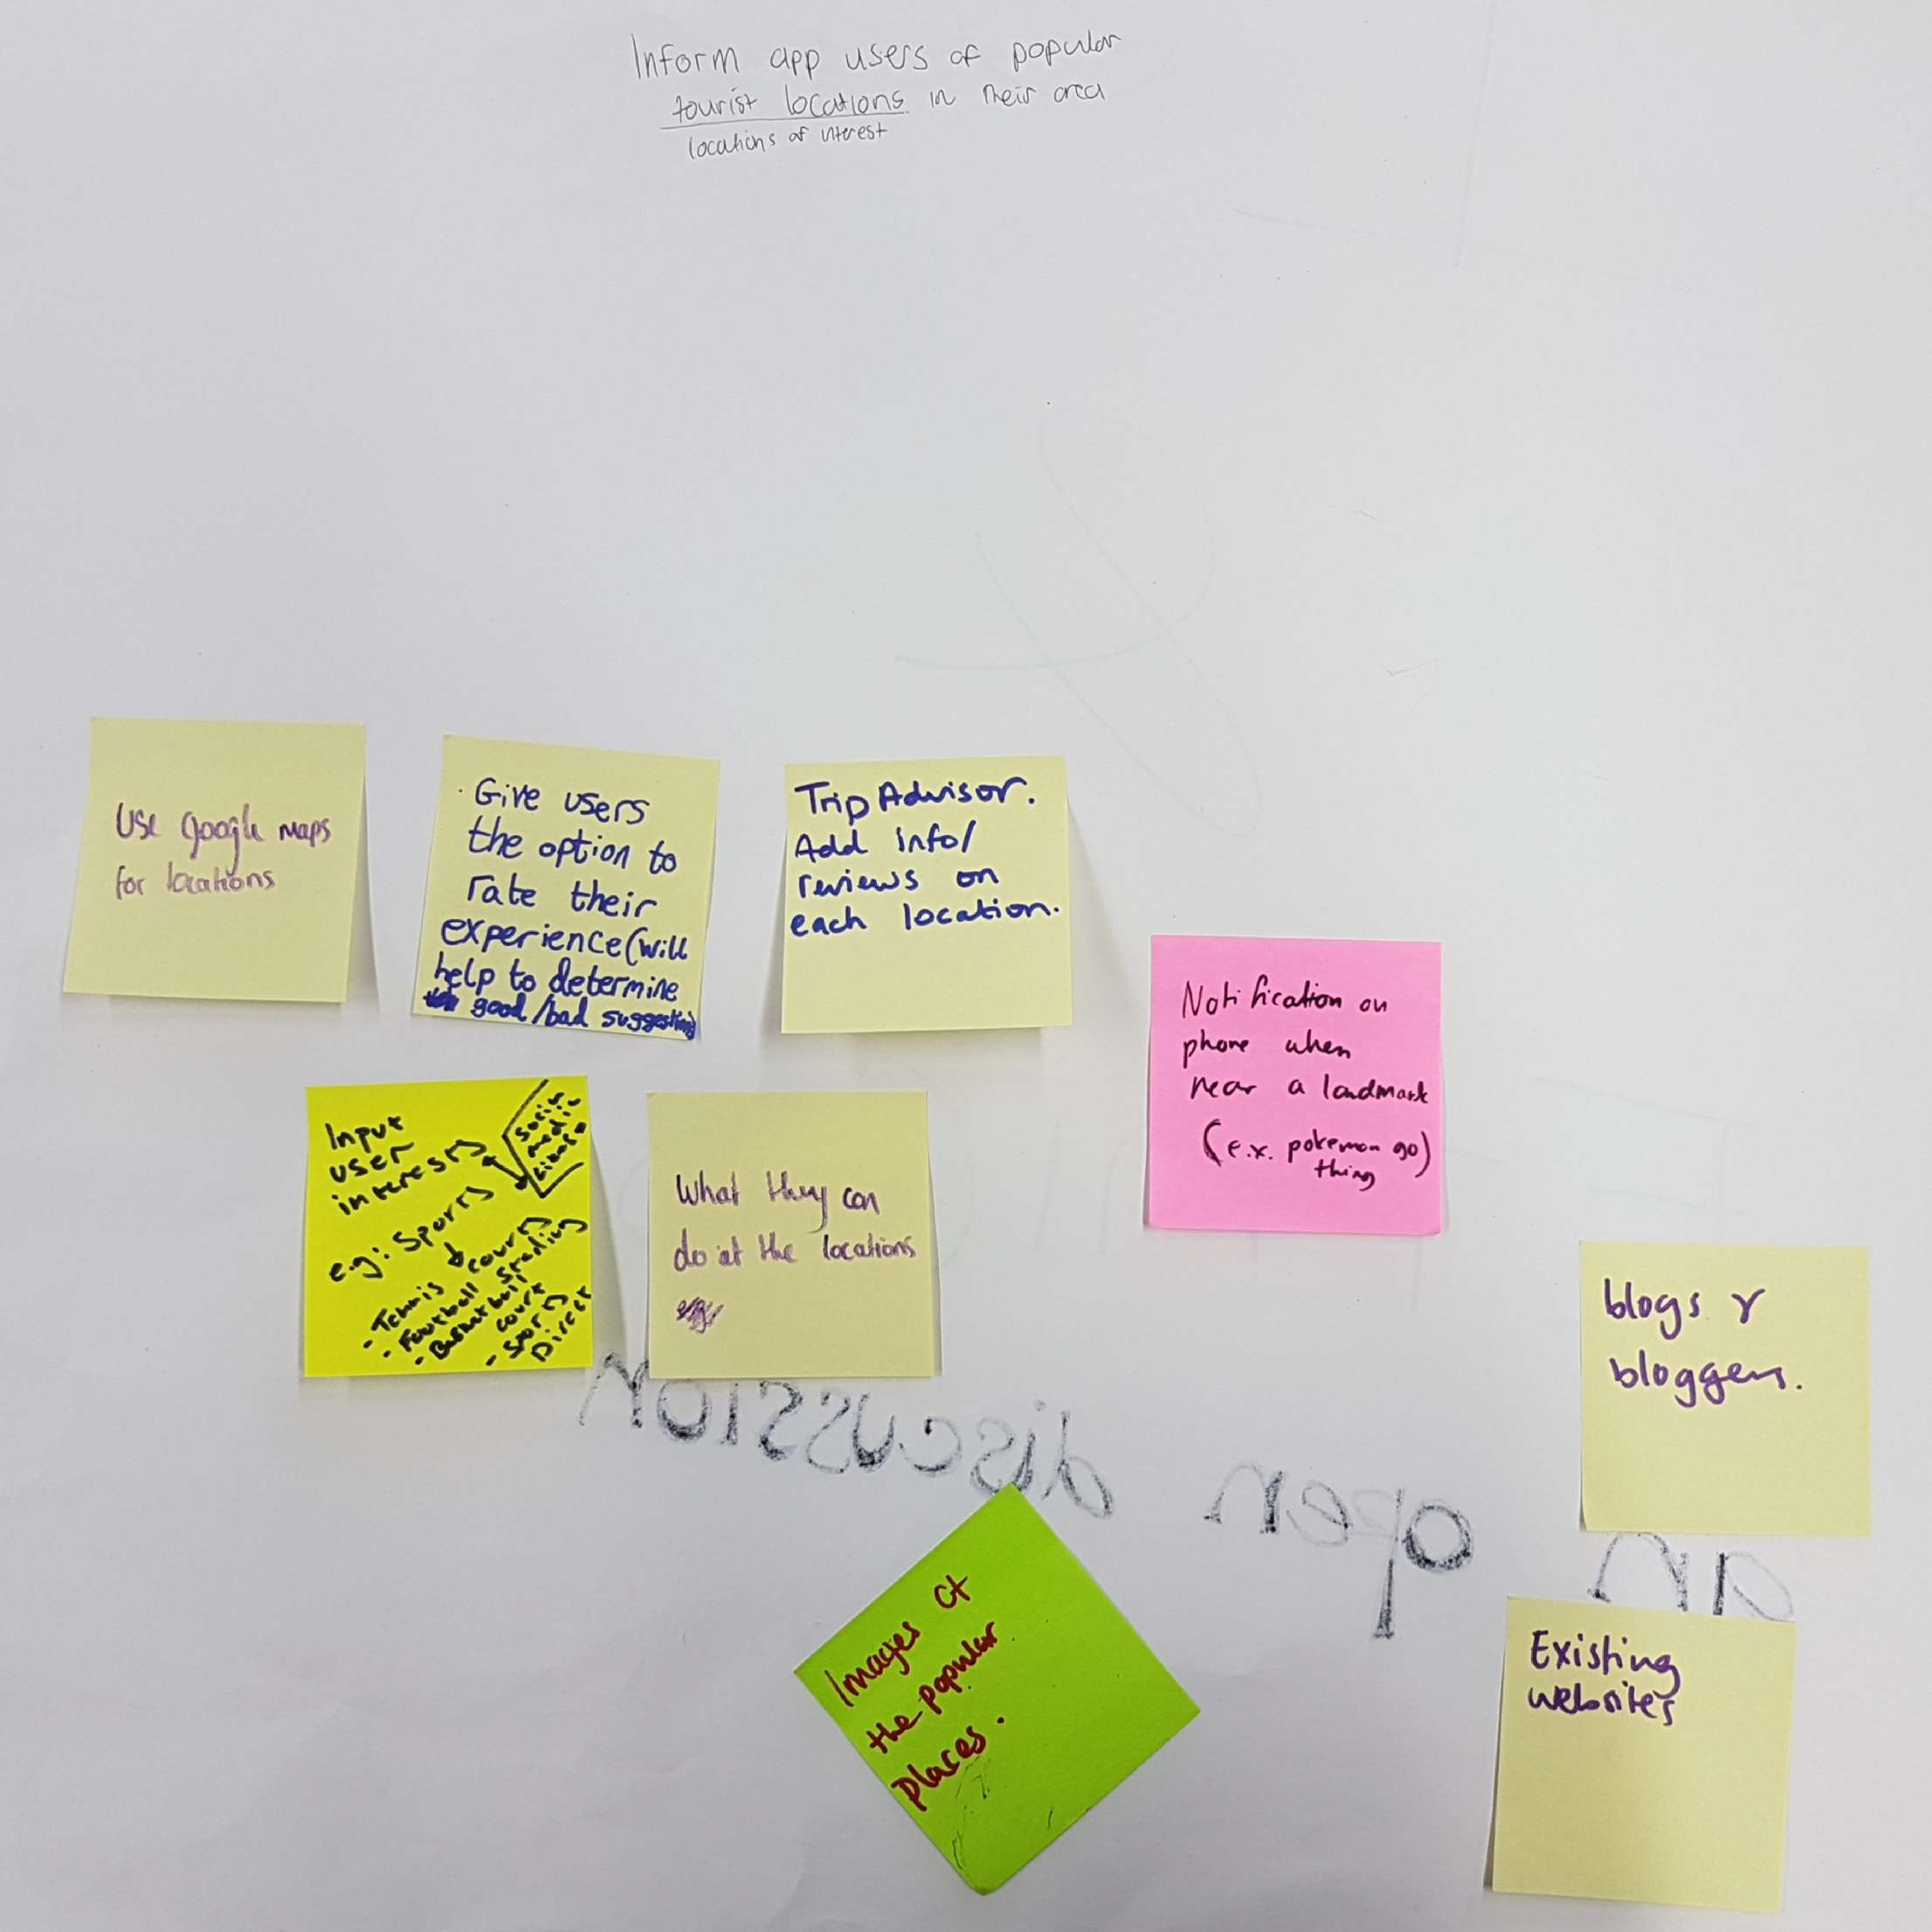 Inform app users of popular
tourist locations in their area
locations of interest
Use google maps
for locations
Give users
the option to
rate their
experience (will
help to determine
good/bad suggestions
Trip Advisor.
Add info/
reviews on
each location.
Notification on
phone when
near a landmark
(e.x. pokemon go)
thing
Input
user
interests
social
media
likes
e.g: Sports
- Tennis court
- Football stadium
- Basketball
court
- Sports
Direct
What they can
do at the locations
blogs &
bloggers.
an open discussion
Images of
the popular
places.
Existing
websites